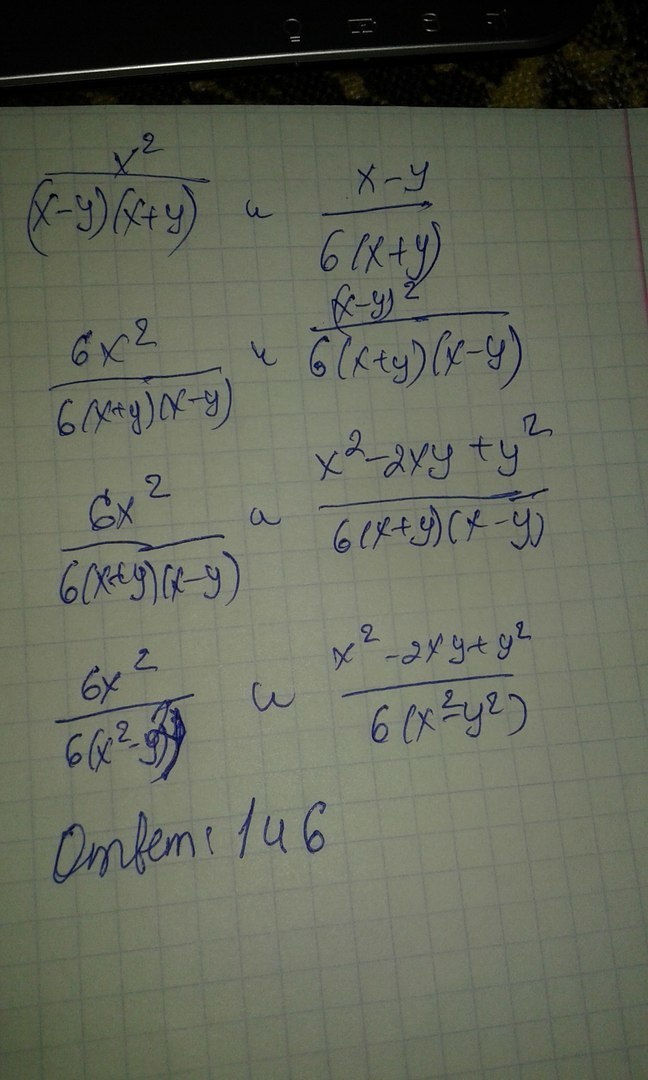 x²/((x-y)(x+y)) и (x-y)/(6(x+y))
6x²/(6(x+y)(x-y)) и (x-y)²/(6(x+y)(x-y))
6x²/(6(x+y)(x-y)) и (x²-2xy+y²)/(6(x+y)(x-y))
6x²/(6(x²-y²)) и (x²-2xy+y²)/(6(x²-y²))
Ответ: 1 и 6